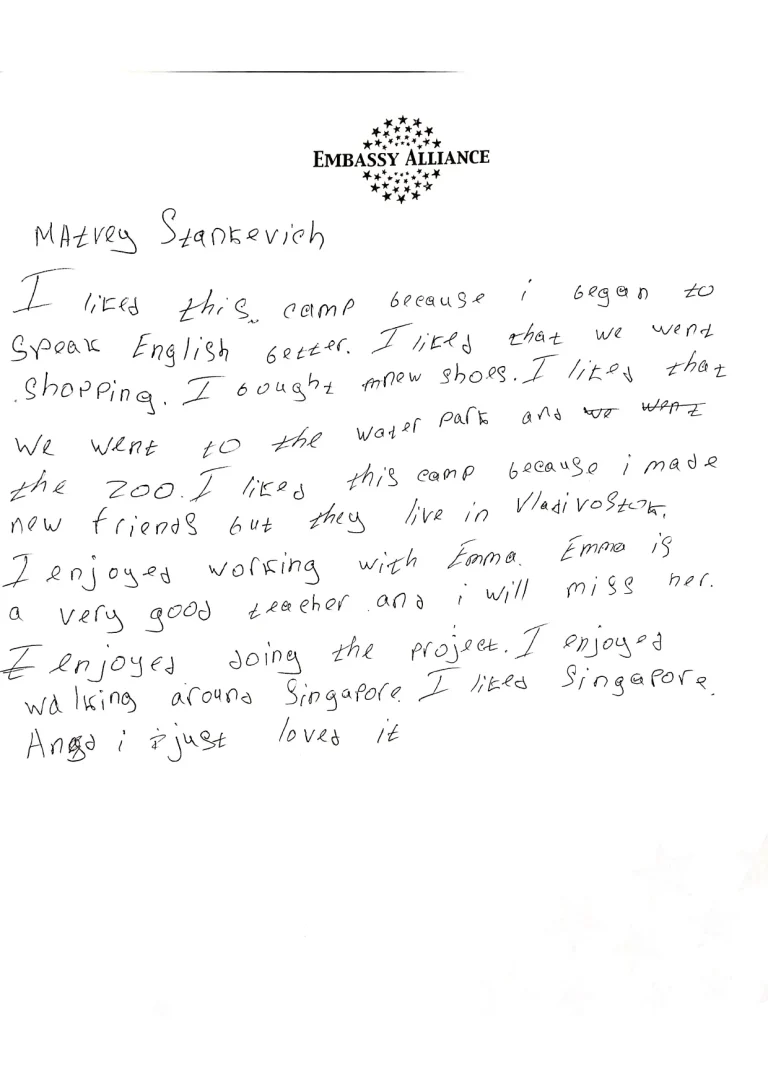 EMBASSY ALLIANCE
Matvey Stankevich
I liked this camp because i began to
speak English better. I liked that we went
shopping. I bought new shoes. I liked that
we went to the water park and we went
the zoo. I liked this camp because i made
new friends but they live in Vladivostok.
I enjoyed working with Emma. Emma is
a very good teacher and i will miss her.
I enjoyed doing the project. I enjoyed
walking around Singapore. I liked Singapore.
And i just loved it